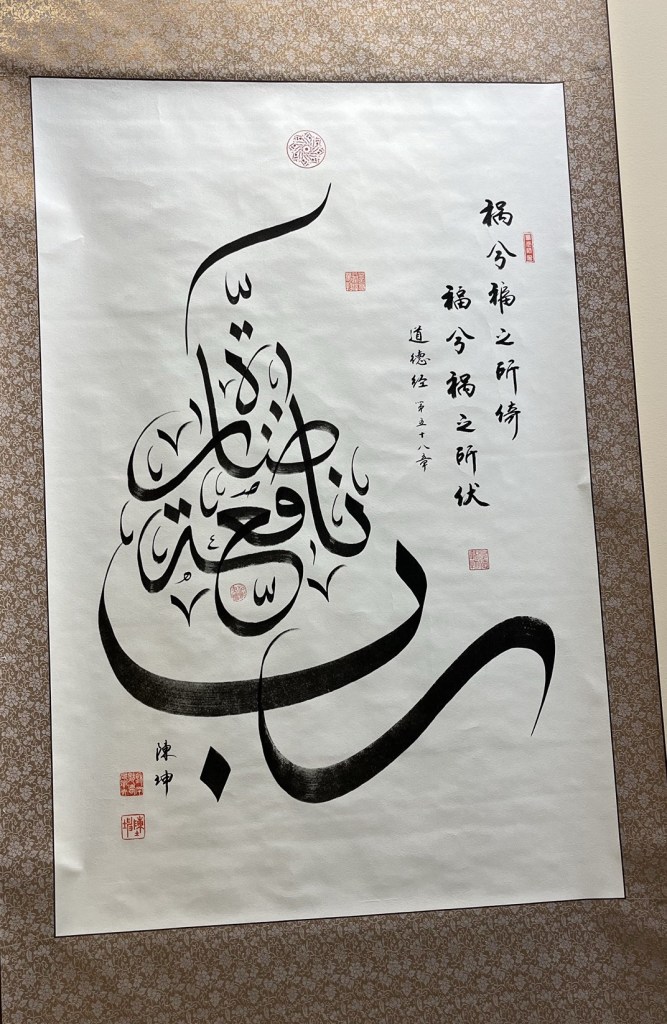 祸兮福之所倚
福兮祸之所伏
道德经 第五十八章
رب ضارة نافعة
陳坤